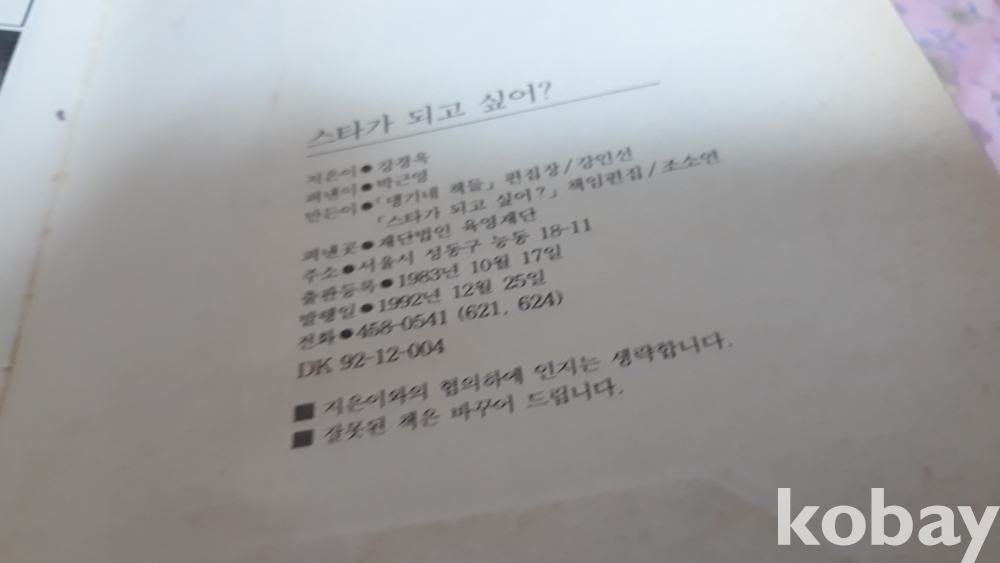 스타가 되고 싶어?
지은이●강경옥
펴낸이●박근영
만든이●「댕기네 책들」 편집장/강인선
「스타가 되고 싶어?」 책임편집/조소연
펴낸곳●재단법인 육영재단
주소●서울시 성동구 능동 18-11
출판등록●1983년 10월 17일
발행일●1992년 12월 25일
전화●458-0541 (621, 624)
DK 92-12-004
■ 지은이와의 협의하에 인지는 생략합니다.
■ 잘못된 책은 바꾸어 드립니다.
kobay